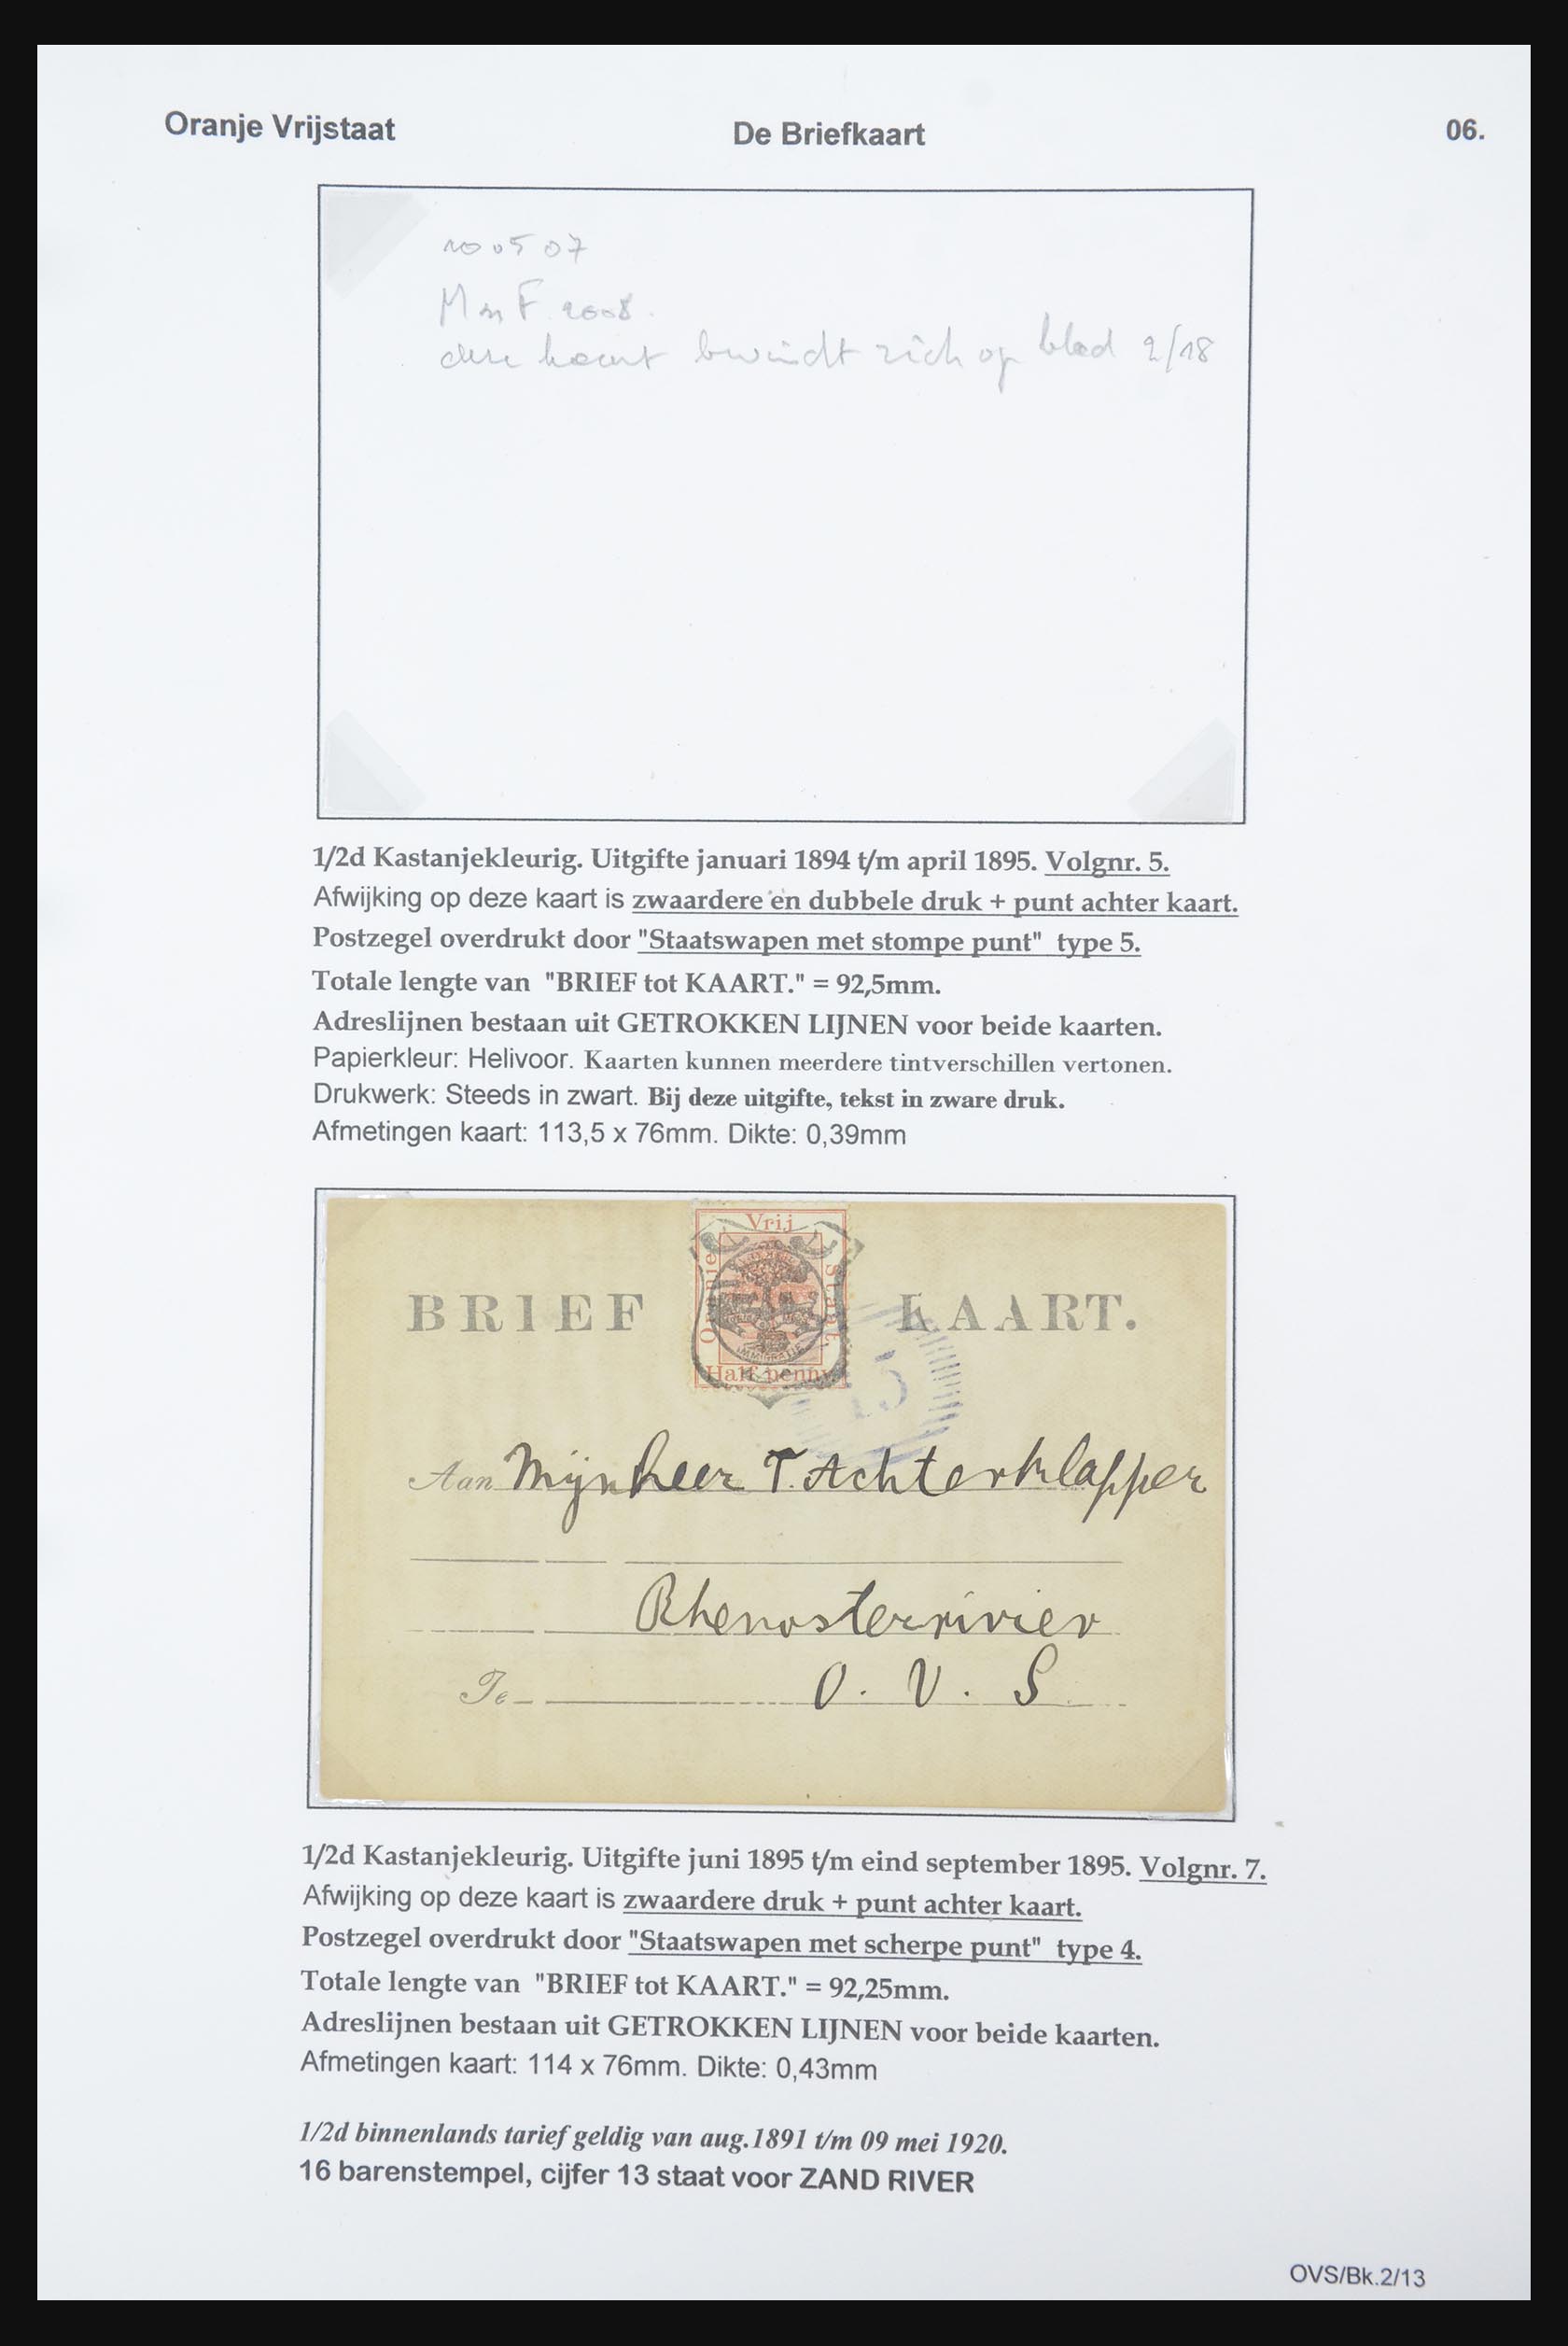 Oranje Vrijstaat
De Briefkaart
06.
10 05 07
M F 2008.
deze kaart bevindt zich op blad 2/18
1/2d Kastanjekleurig. Uitgifte januari 1894 t/m april 1895. Volgnr. 5.
Afwijking op deze kaart is zwaardere en dubbele druk + punt achter kaart.
Postzegel overdrukt door "Staatswapen met stompe punt" type 5.
Totale lengte van "BRIEF tot KAART." = 92,5mm.
Adreslijnen bestaan uit GETROKKEN LIJNEN voor beide kaarten.
Papierkleur: Helivoor. Kaarten kunnen meerdere tintverschillen vertonen.
Drukwerk: Steeds in zwart. Bij deze uitgifte, tekst in zware druk.
Afmetingen kaart: 113,5 x 76mm. Dikte: 0,39mm
Vrij
Oranje
Staat.
BRIEF KAART.
IMMIGRATIE
Half penny
Aan Mijnheer T. Achterklapper
Rhenosterrivier
Te O. V. S
1/2d Kastanjekleurig. Uitgifte juni 1895 t/m eind september 1895. Volgnr. 7.
Afwijking op deze kaart is zwaardere druk + punt achter kaart.
Postzegel overdrukt door "Staatswapen met scherpe punt" type 4.
Totale lengte van "BRIEF tot KAART." = 92,25mm.
Adreslijnen bestaan uit GETROKKEN LIJNEN voor beide kaarten.
Afmetingen kaart: 114 x 76mm. Dikte: 0,43mm
1/2d binnenlands tarief geldig van aug.1891 t/m 09 mei 1920.
16 barenstempel, cijfer 13 staat voor ZAND RIVER
OVS/Bk.2/13